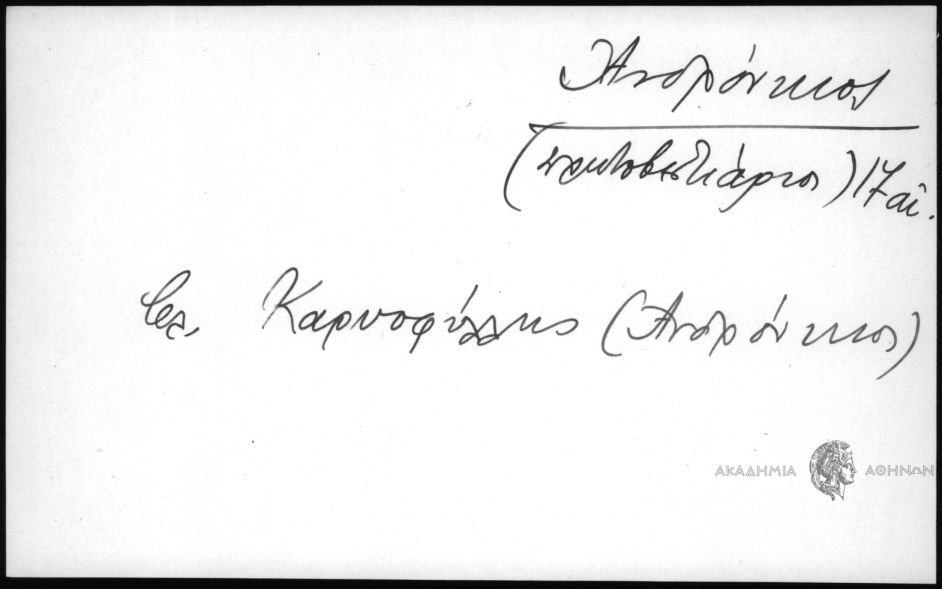 Ἀνδρόνικος
(πρωτοβεστιάριος) 17 αἰ.
βλ. Καρυοφύλλης (Ἀνδρόνικος)
ΑΚΑΔΗΜΙΑ ΑΘΗΝΩΝ